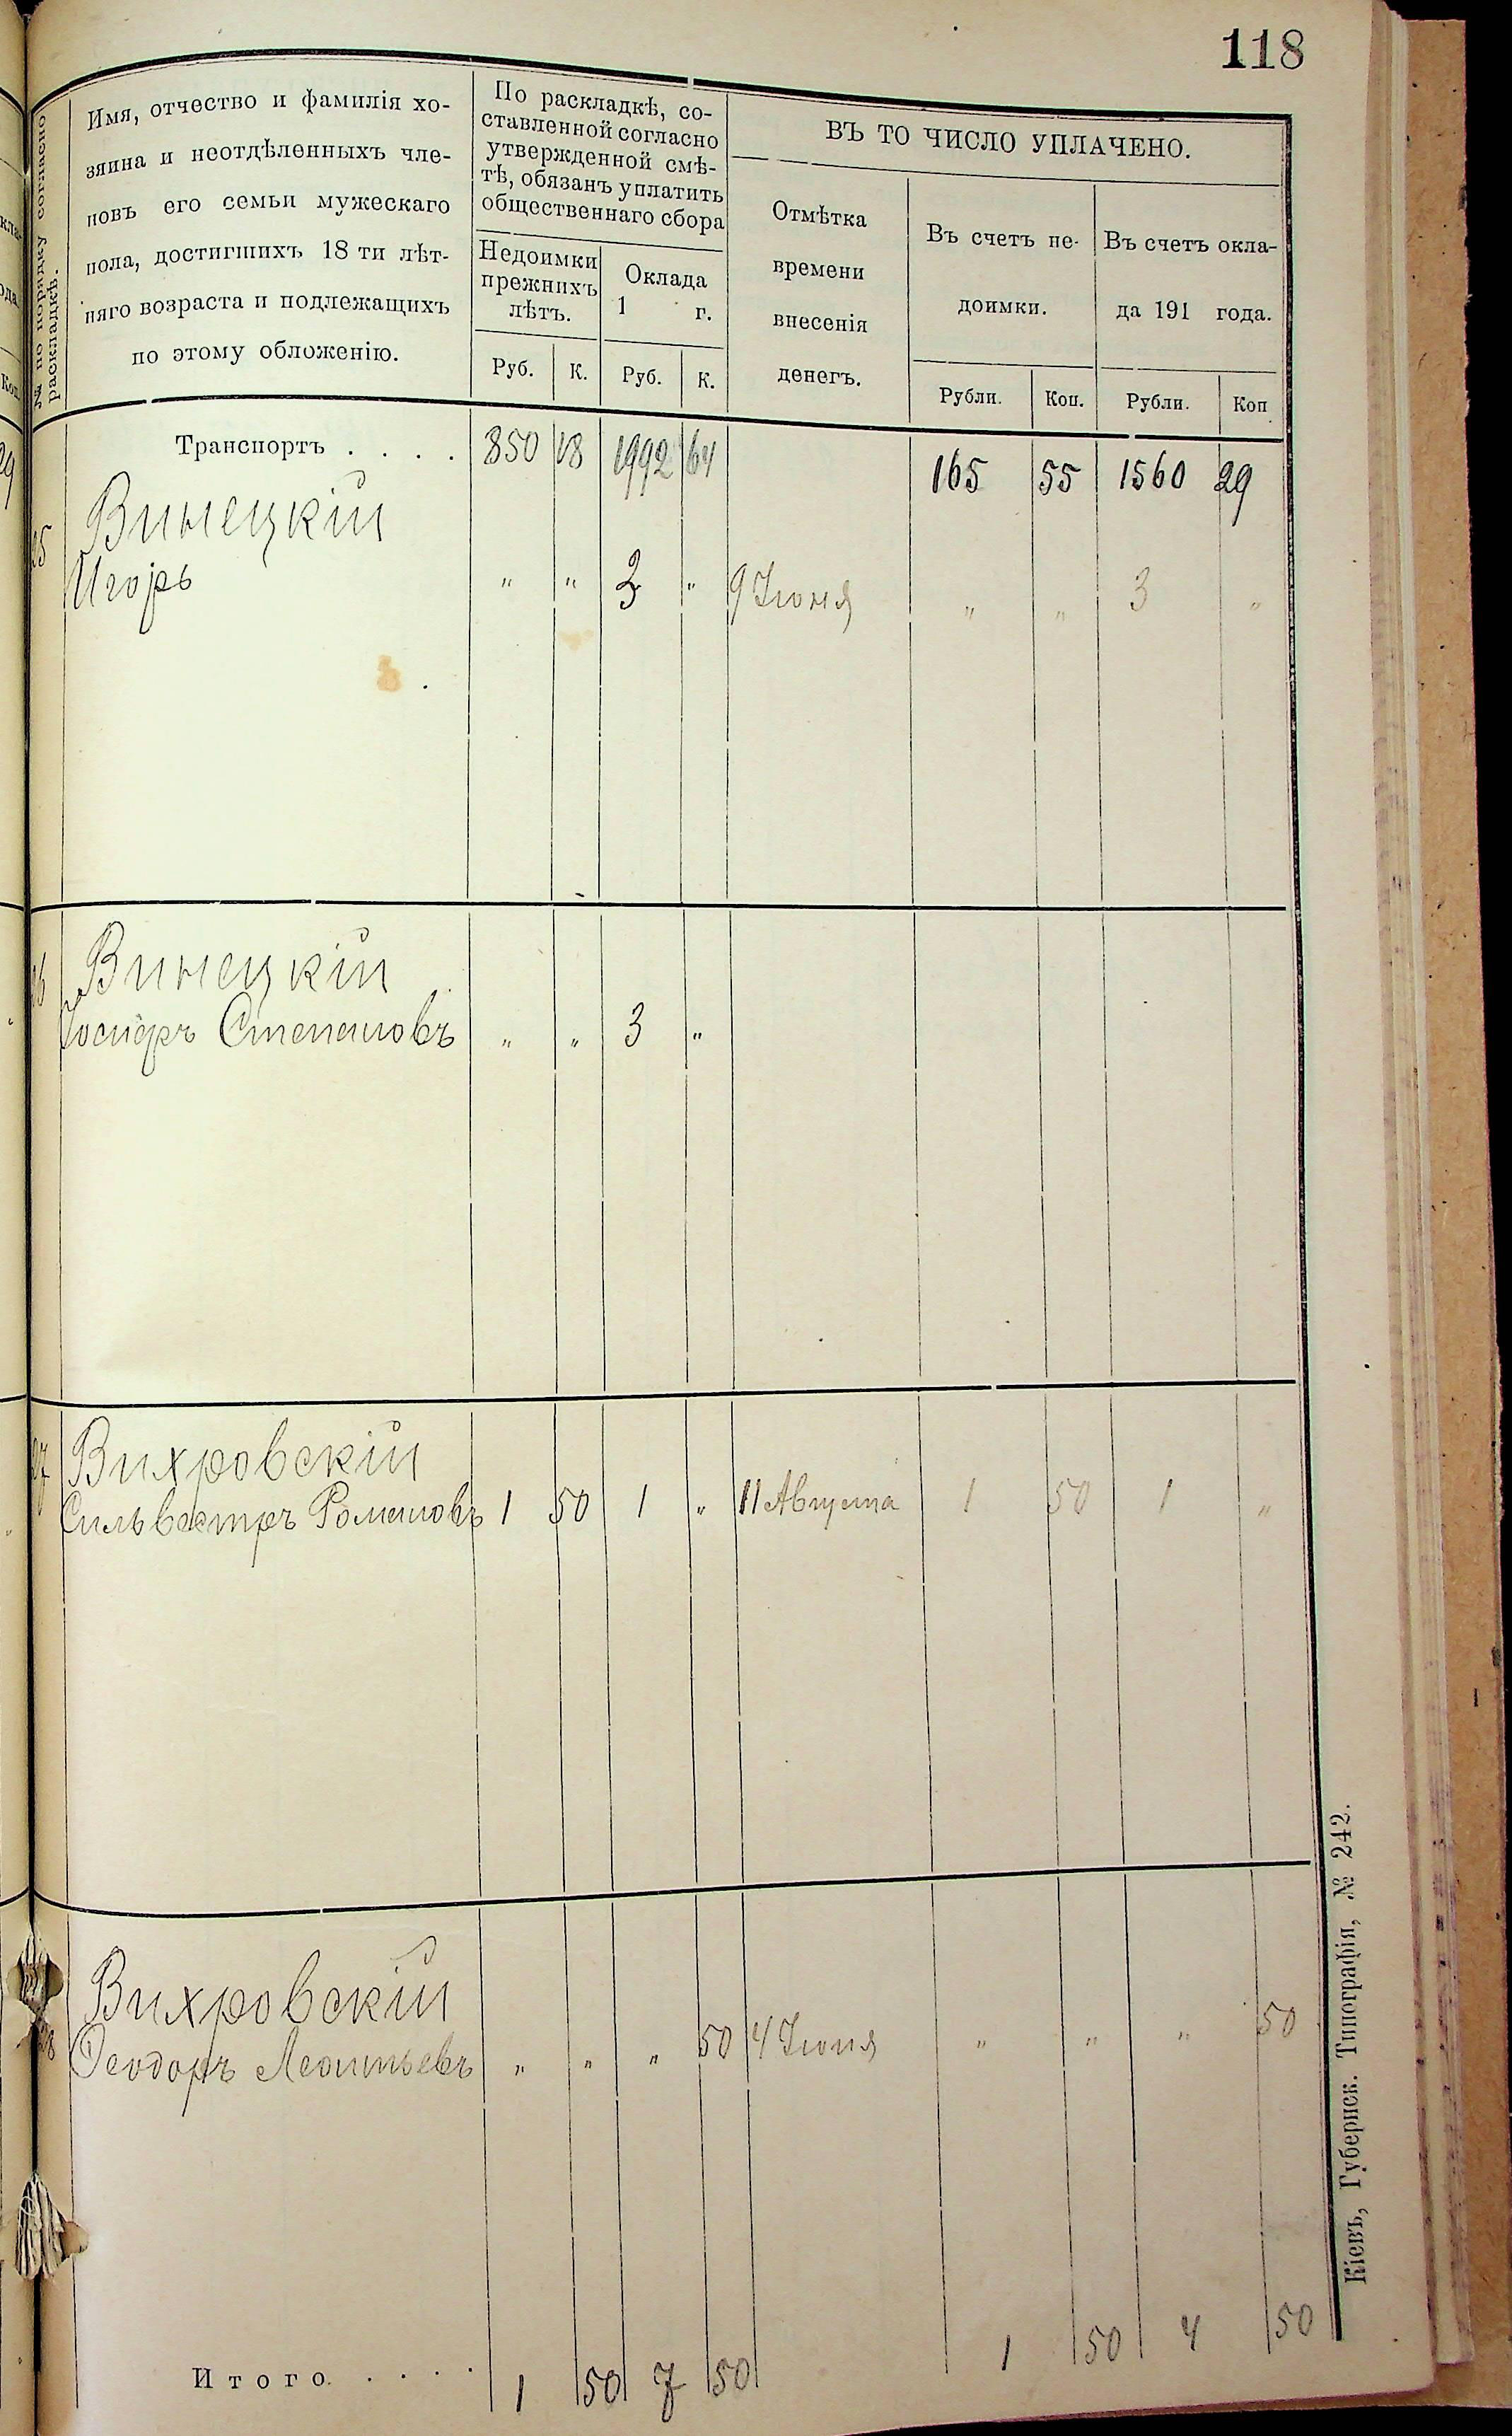 118
№ по порядку согласно
раскладкѣ.
Имя, отчество и фамилія хо-
зяина и неотдѣленныхъ чле-
новъ его семьи мужескаго
пола, достигшихъ 18 ти лѣт-
няго возраста и подлежащихъ
по этому обложенію.
По раскладкѣ, со-
ставленной согласно
утвержденной смѣ-
тѣ, обязанъ уплатить
общественнаго сбора
Недоимки
прежнихъ
лѣтъ.
Оклада
1 г.
Руб. К. Руб. К.
ВЪ ТО ЧИСЛО УПЛАЧЕНО.
Отмѣтка
времени
внесенія
денегъ.
Въ счетъ не-
доимки.
Въ счетъ окла-
да 191 года.
Рубли. Коп. Рубли. Коп
Транспортъ . . . . 850 18 1992 64 165 55 1560 29
Винецкій
Игорь " " 3 " 9 Іюня " " 3 "
Винецкій
Іосифъ Степановъ " " 3 "
Вихровскій
Сильвестръ Романовъ 1 50 1 " 11 Августа 1 50 1 "
Вихровскій
Ѳеодоръ Леонтьевъ " " " 50 4 Іюня " " " 50
Итого . . . . 1 50 7 50 1 50 4 50
Кіевъ, Губернск. Типографія, № 242.